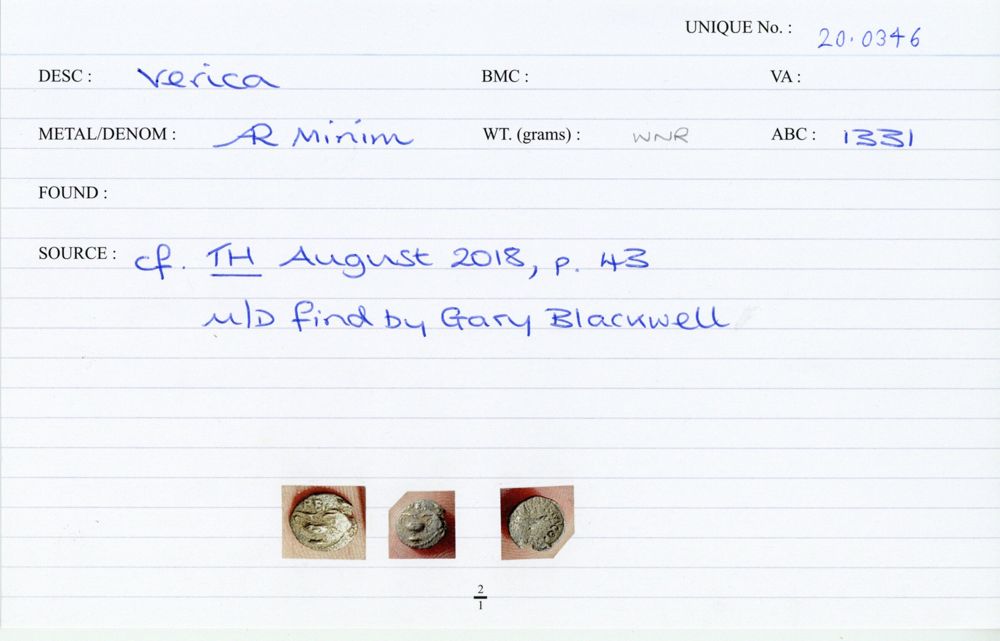 UNIQUE No. : 20.0346
DESC : Verica BMC : VA :
METAL/DENOM : AR Minim WT. (grams) : WNR ABC : 1331
FOUND :
SOURCE : cf. TH August 2018, p. 43
M/D find by Gary Blackwell
2
1